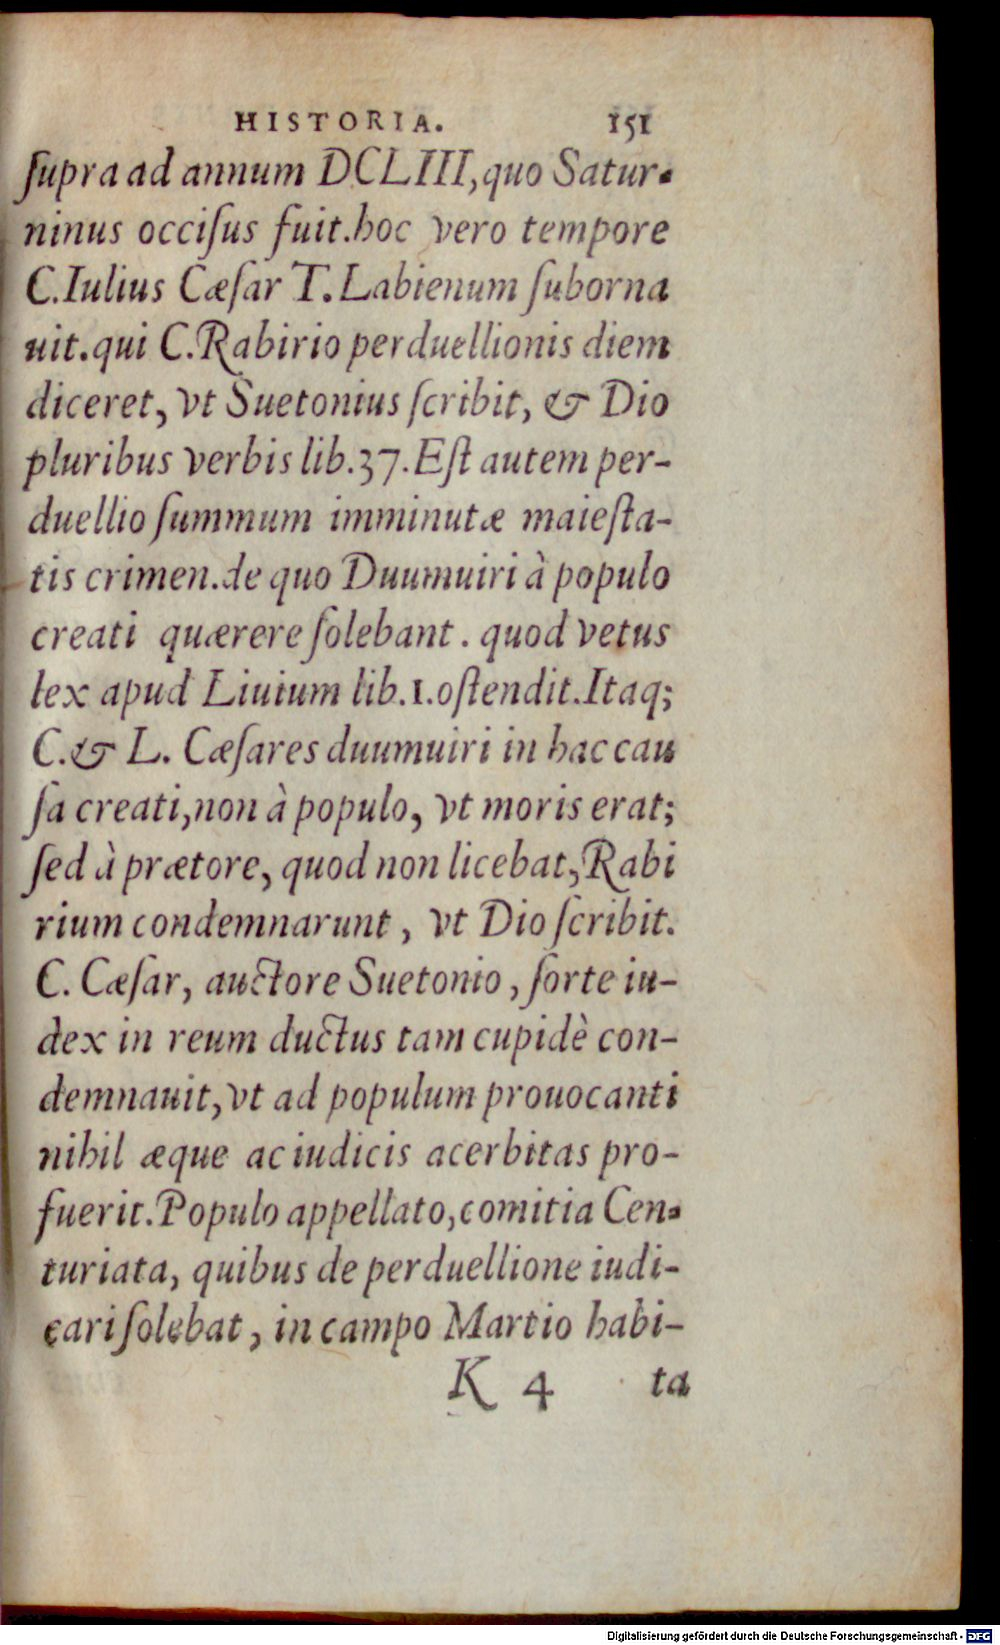 HISTORIA. 151
ſupra ad annum DCLIII, quo Satur-
ninus occiſus fuit. hoc vero tempore
C. Iulius Cæſar T. Labienum ſuborna
uit. qui C. Rabirio perduellionis diem
diceret, vt Suetonius ſcribit, & Dio
pluribus verbis lib. 37. Eſt autem per-
duellio ſummum imminutæ maieſta-
tis crimen. de quo Duumuiri à populo
creati quærere ſolebant. quod vetus
lex apud Liuium lib. 1. oſtendit. Itaq;
C. & L. Cæſares duumuiri in hac cau
ſa creati, non à populo, vt moris erat;
ſed à prætore, quod non licebat, Rabi
rium condemnarunt, vt Dio ſcribit.
C. Cæſar, auctore Suetonio, ſorte iu-
dex in reum ductus tam cupidè con-
demnauit, vt ad populum prouocanti
nihil æque ac iudicis acerbitas pro-
fuerit. Populo appellato, comitia Cen-
turiata, quibus de perduellione iudi-
cari ſolebat, in campo Martio habi-
K 4 ta
Digitalisierung gefördert durch die Deutsche Forschungsgemeinschaft - DFG